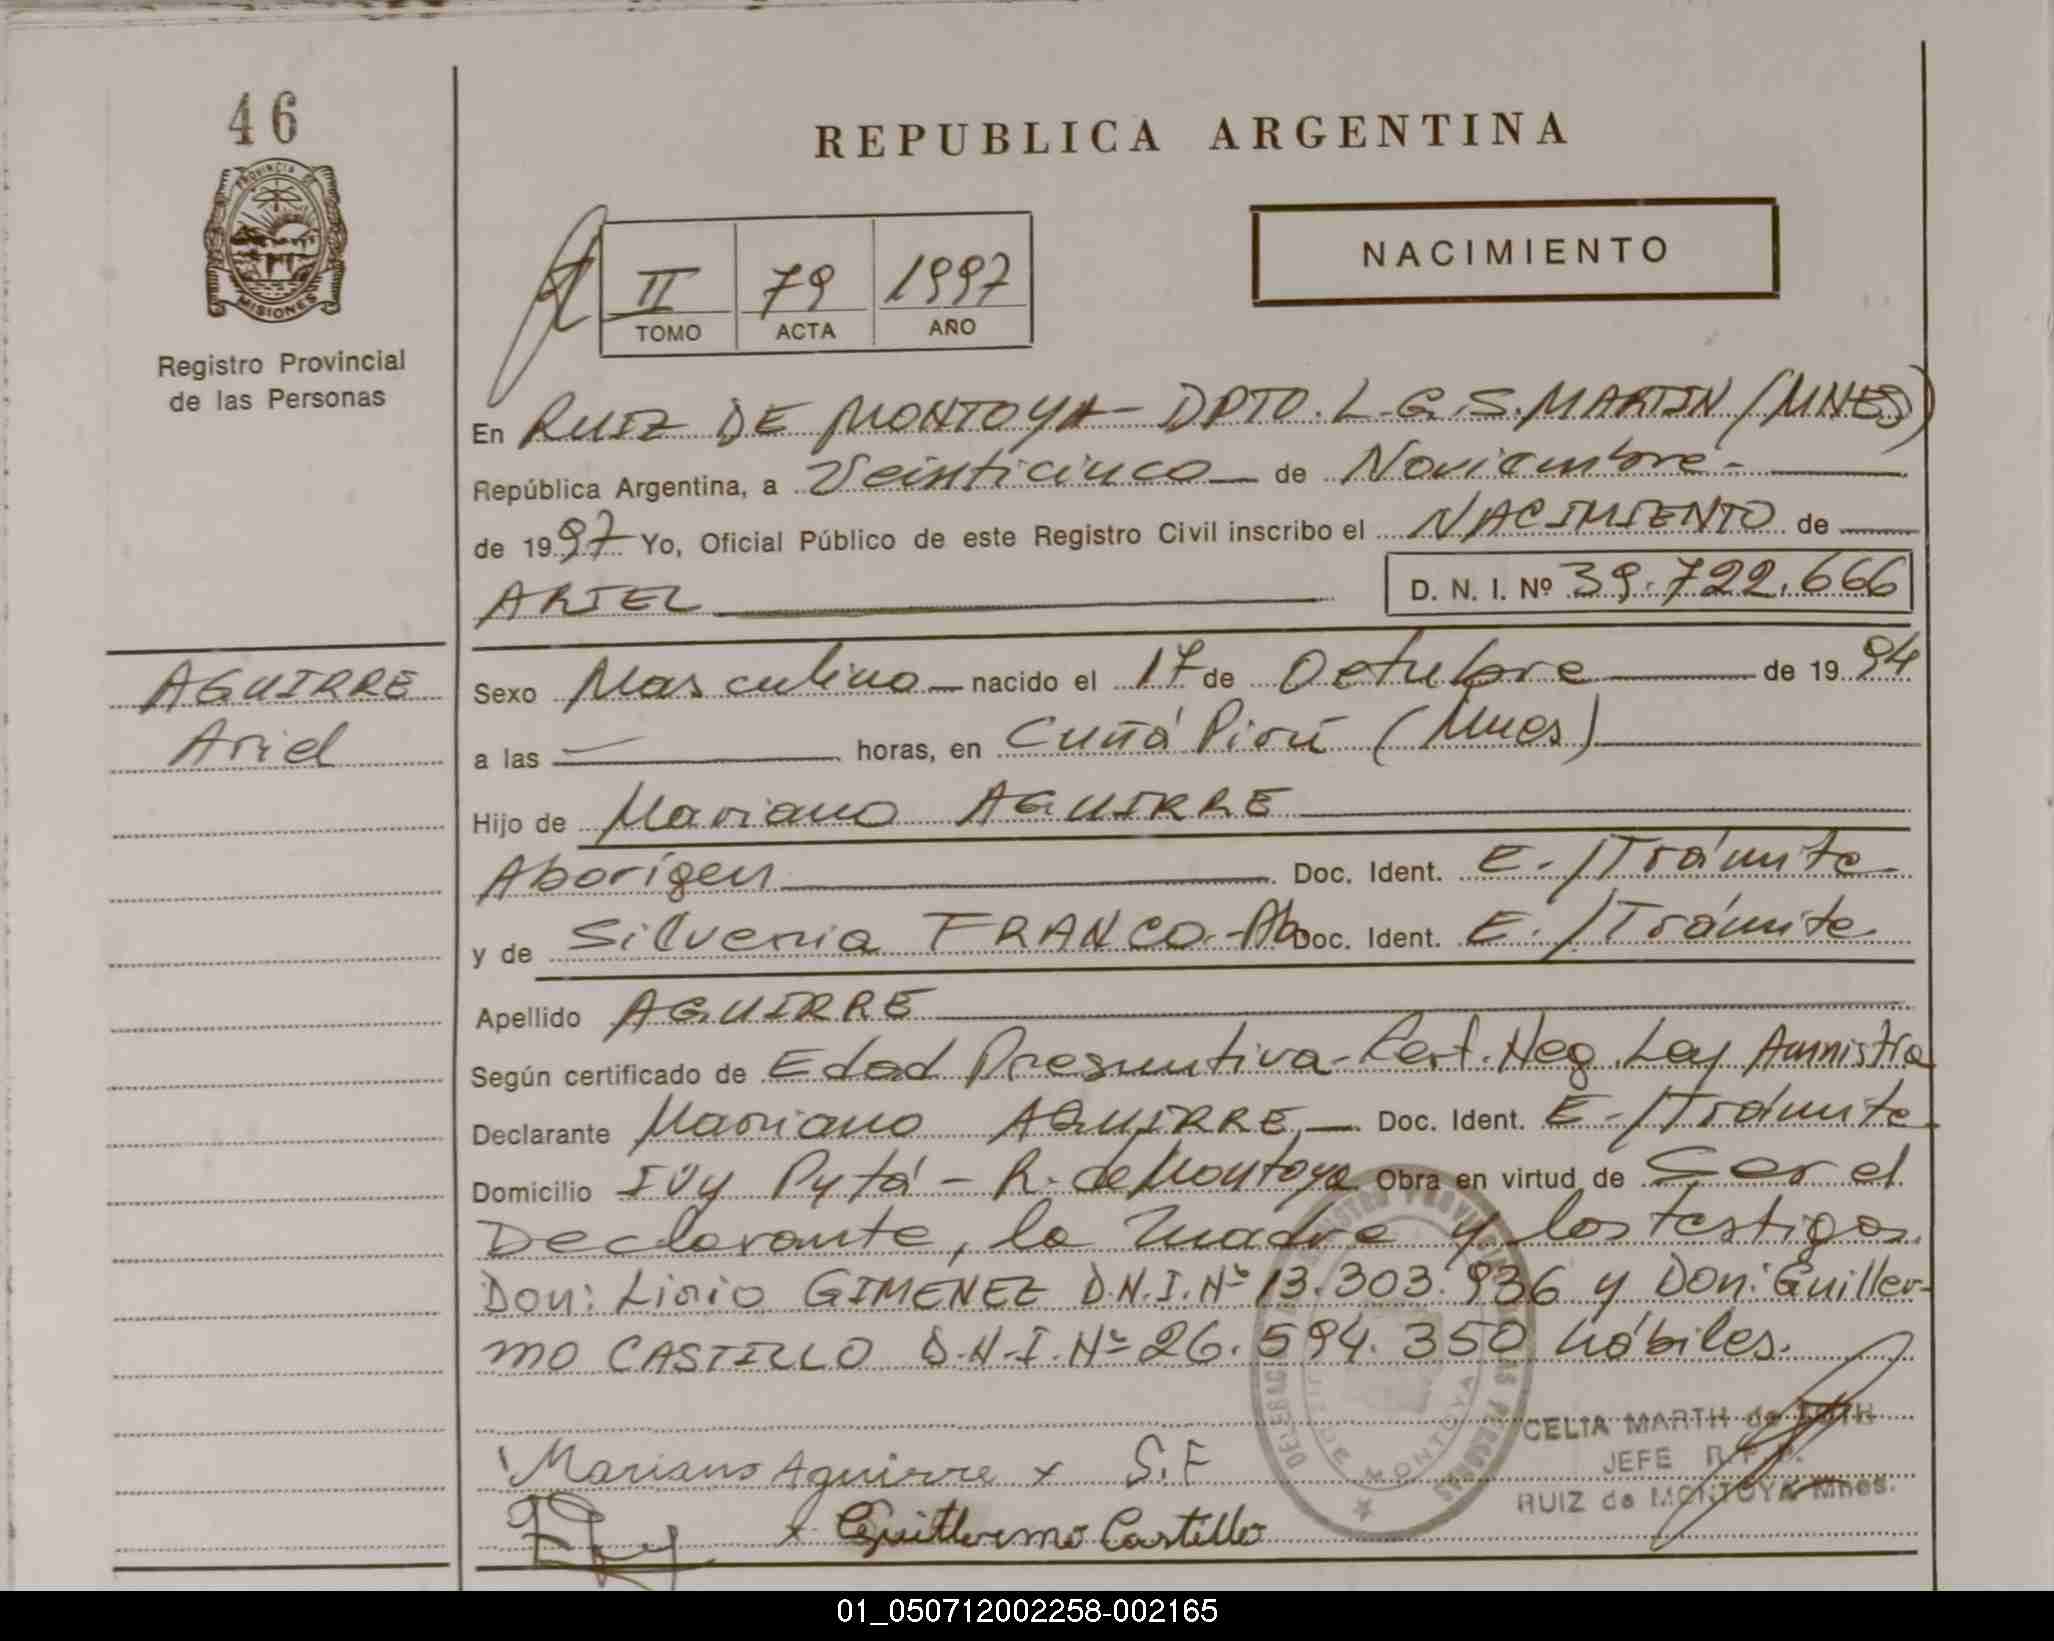 46
PROVINCIA DE
MISIONES
Registro Provincial
de las Personas
REPUBLICA ARGENTINA
NACIMIENTO
II 79 1997
TOMO ACTA AÑO
En RUIZ DE MONTOYA - DPTO. L.G.S. MARTIN (MNES)
República Argentina, a Veinticinco de Noviembre.-
de 1997 Yo, Oficial Público de este Registro Civil inscribo el NACIMIENTO de
ARIEL D. N. I. Nº 39.722.666
AGUIRRE
Ariel
Sexo Masculino nacido el 17 de Octubre de 1994
a las horas, en Cuñá Pirú (Mnes)
Hijo de Mariano AGUIRRE
Aborígen Doc. Ident. E./Trámite
y de Silveria FRANCO - Ab. Doc. Ident. E./Trámite
Apellido AGUIRRE
Según certificado de Edad Presuntiva - Cert. Neg. Ley Amnistia
Declarante Mariano AGUIRRE Doc. Ident. E-/Trámite
Domicilio Ivy Pytá - R. de Montoya Obra en virtud de Ser el
Declarante, la madre y los testigos
Don: Lirio GIMENEZ D.N.I. Nº 13.303.936 y Don: Guiller-
mo CASTILLO D.N.I. Nº 26.594.350 hábiles.
Mariano Aguirre x S.F
x Guillermo Castillo
CELIA MARTH de
JEFE R.P.P.
RUIZ de MONTOYA Mnes.
01_050712002258-002165